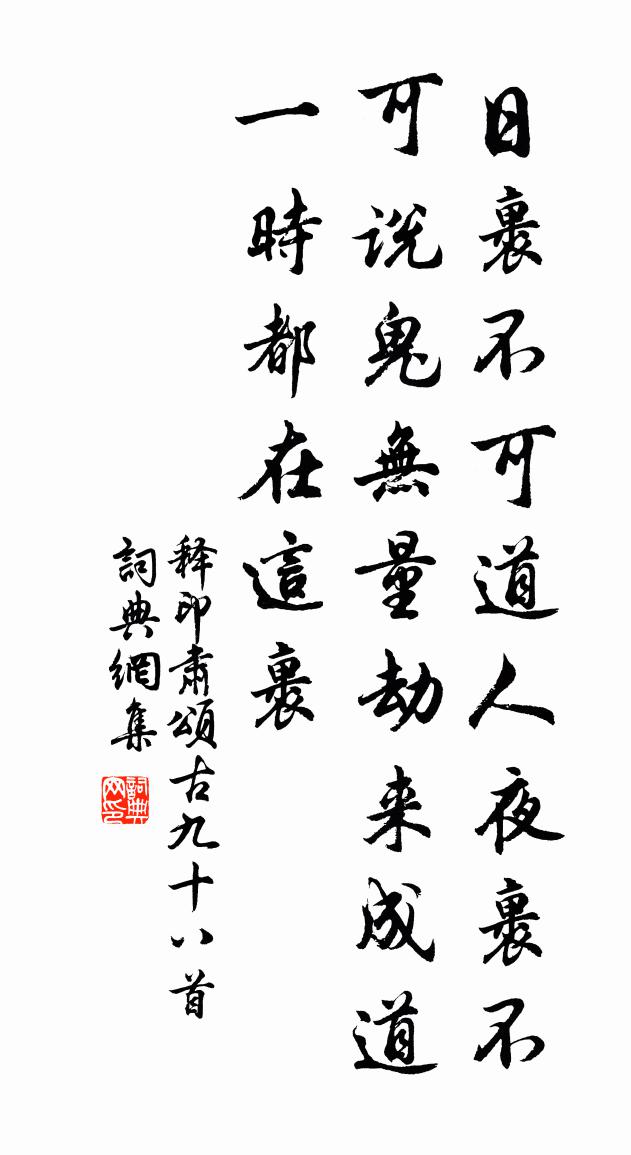 日裹不可道人夜裹不
可说鬼無量劫来成道
一時都在這裹
释印肃頌古九十八首
詞典網集
詞典
网印